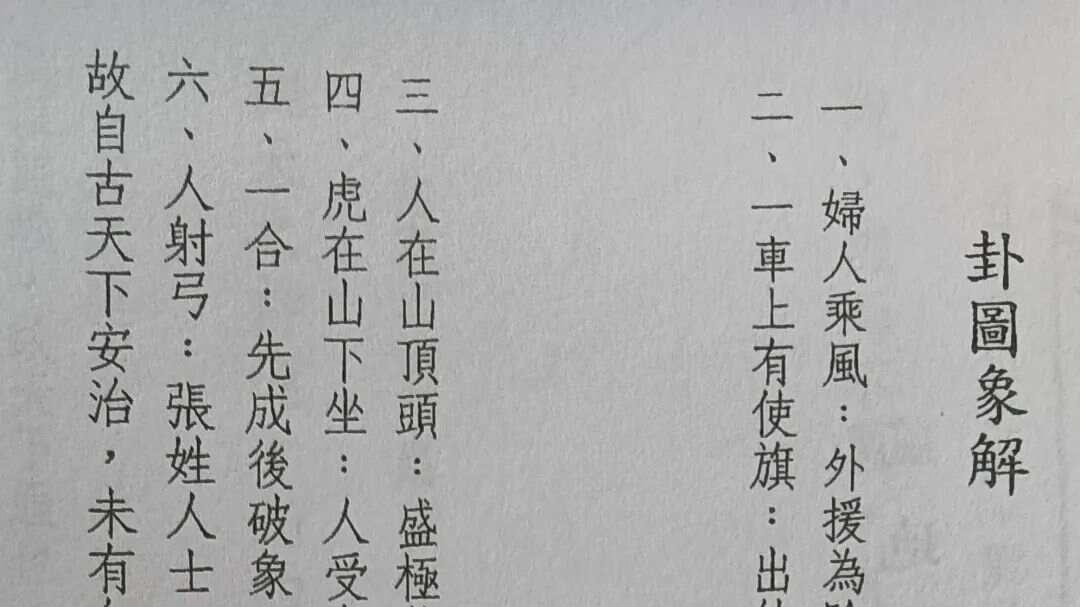 卦圖象解
一、婦人乘風：外援為
二、一車上有使旗：出
三、人在山頂頭：盛極
四、虎在山下坐：人受
五、一合：先成後破象
六、人射弓：張姓人士
故自古天下安治，未有